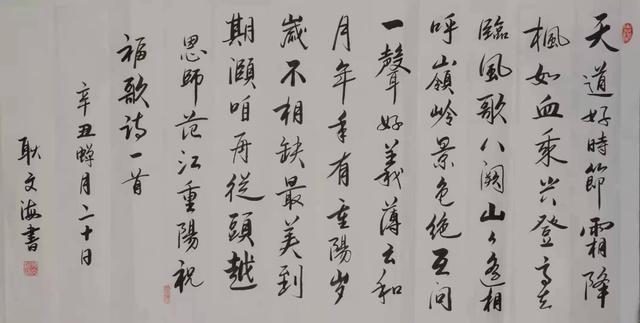 天道好時節霜降
楓如血乘兴登高去
臨風歌八阕山々遥相
呼嶺岭景色绝互问
一聲好義薄云和
月年年有重陽岁
歲不相缺最美到
期颐咱再從頭越
恩師范江重陽祝
福歌诗一首
辛丑蟬月二十日
耿文海書